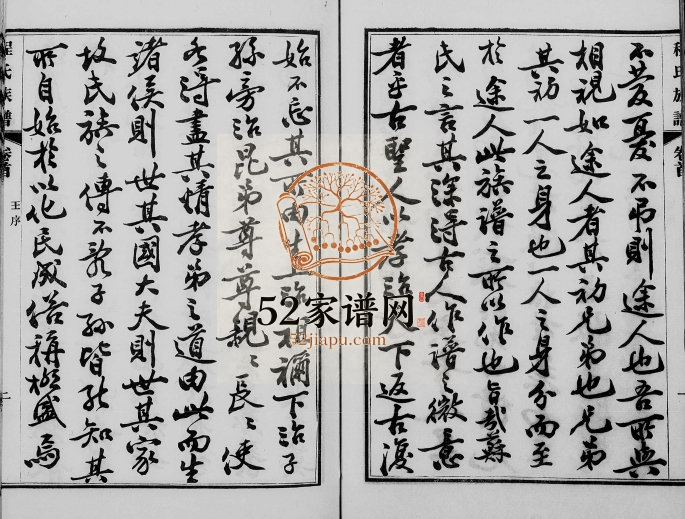 程氏族譜 卷首
不慶憂不弔則途人也吾所與
相視如途人者其初兄弟也兄弟
其初一人之身也一人之身分而至
於途人此族譜之所以作也旨哉蘇
氏之言其深得古人作譜之微意
者乎古聖人以孝治天下返古復
始不忘其所由生上治祖禰下治子
孫旁治昆弟尊尊親〻長〻使
各得盡其情孝弟之道由此而生
諸侯則世其國大夫則世其家
故氏族之傳不亂子孫皆能知其
所自始於以化民成俗稱極盛焉
程氏族譜 卷首 王序 二
52家谱网
52jiapu.com